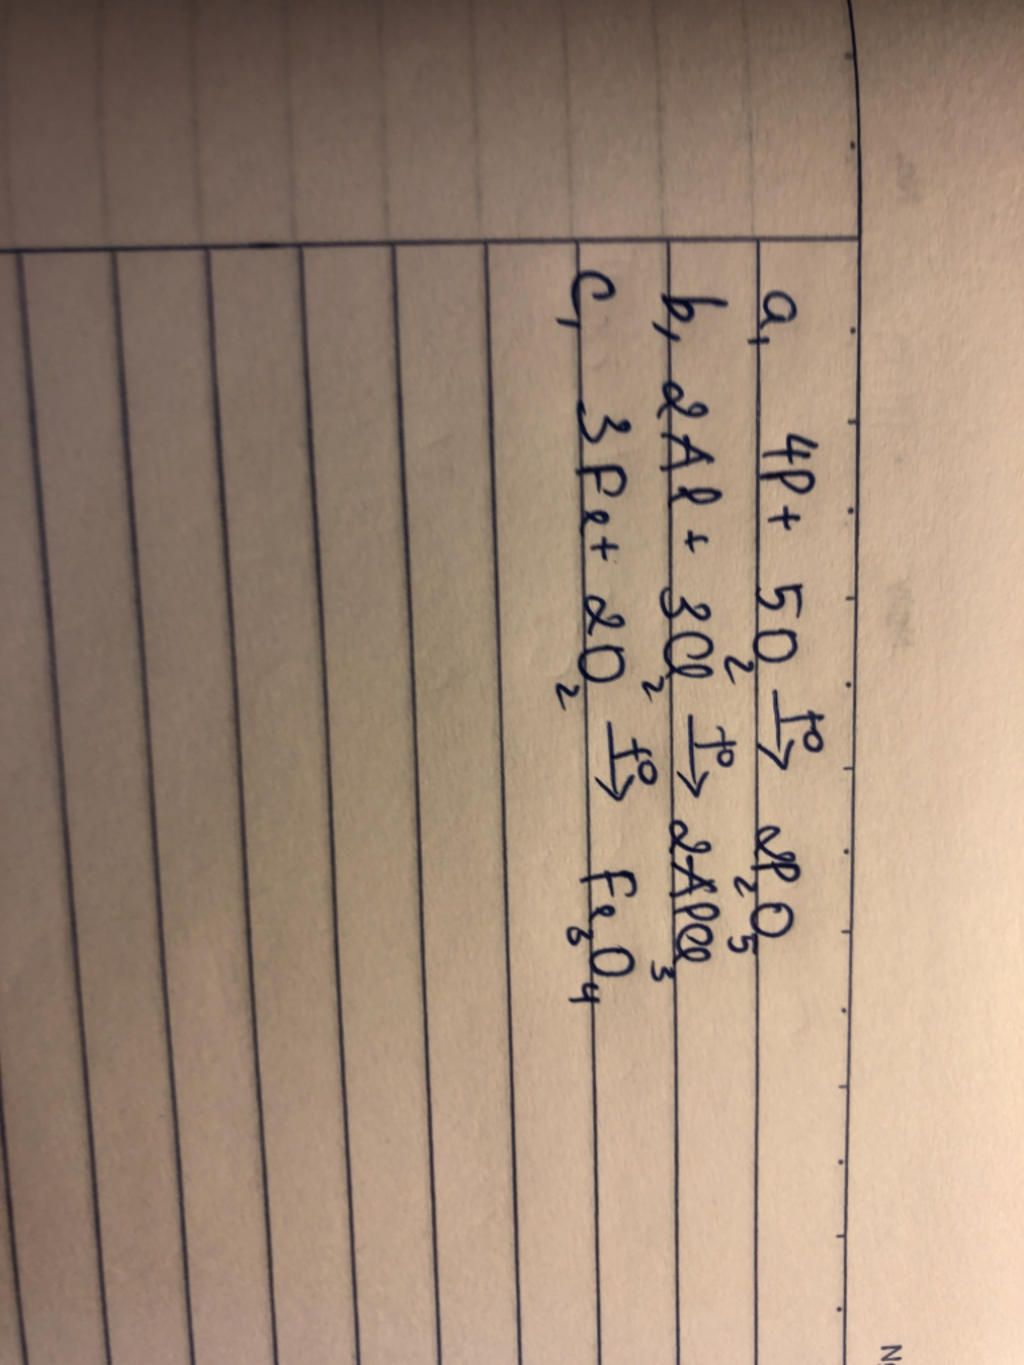 a, 4P + 5O₂ →t° 2P₂O₅
b, 2Al + 3Cl₂ →t° 2AlCl₃
c, 3Fe + 2O₂ →t° Fe₃O₄